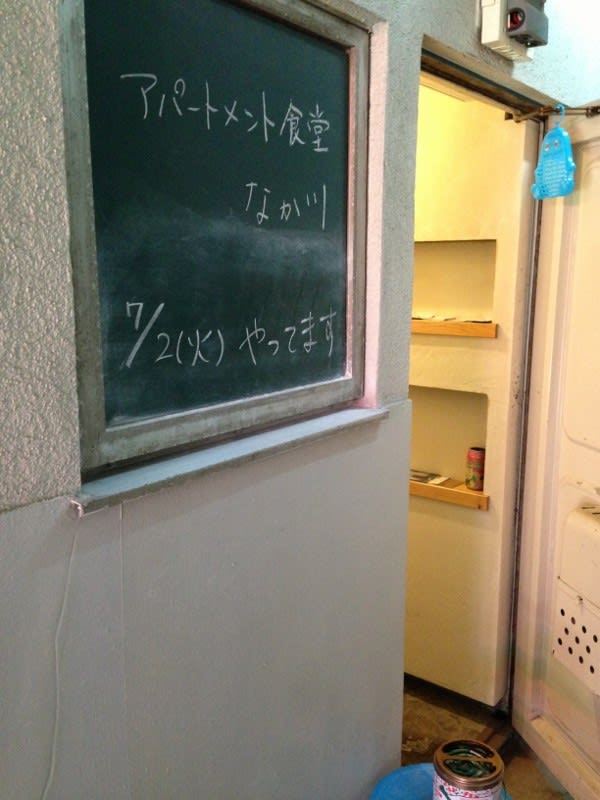 アパートメント食堂
なか川
7/2(火) やってます